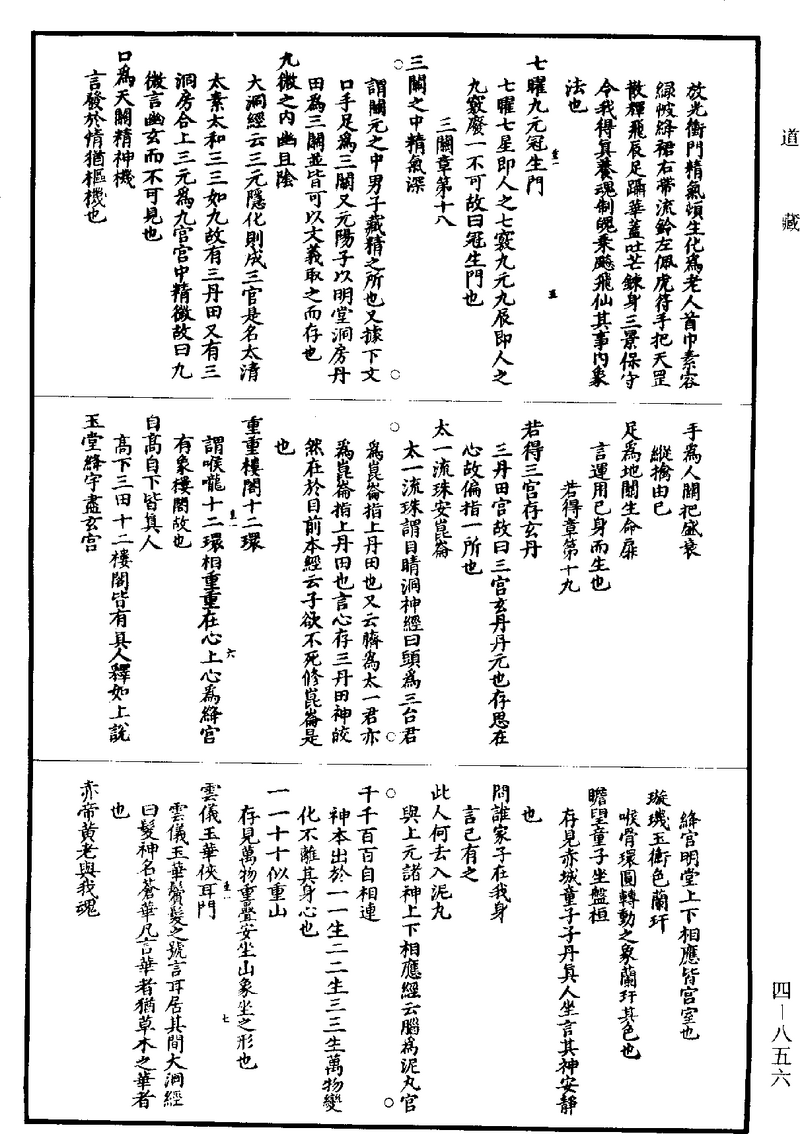 道藏
放光衝門精氣頓生化為老人首巾素容
綠帔絳裙右帶流鈴左佩虎符手把天罡
散輝飛辰足躡華蓋吐芒鍊身三景保守
令我得真養魂制魄乘飈飛仙其事內象
法也
七曜九元冠生門
七曜七星即人之七竅九元九辰即人之
九竅廢一不可故曰冠生門也
三關章第十八
三關之中精氣深
謂關元之中男子藏精之所也又據下文
口手足為三關又元陽子以明堂洞房丹
田為三關並皆可以文義取之而存也
九微之內幽且陰
大洞經云三元隱化則成三宮是名太清
太素太和三三如九故有三丹田又有三
洞房合上三元為九宮宮中精微故曰九
微言幽玄而不可見也
口為天關精神機
言發於情猶樞機也
手為人關把盛衰
縱擒由己
足為地關生命扉
言運用己身而生也
若得章第十九
若得三宮存玄丹
三丹田宮故曰三宮玄丹丹元也存思在
心故偏指一所也
太一流珠安崑崙
太一流珠謂目睛洞神經曰頭為三台君
為崑崙指上丹田也又云臍為太一君亦
為崑崙指上丹田也言心存三丹田神皎
然在於目前本經云子欲不死修崑崙是
也
重重樓閣十二環
謂喉嚨十二環相重重在心上心為絳宮
有象樓閣故也
自高自下皆真人
高下三田十二樓閣皆有真人釋如上說
玉堂絳宇盡玄宮
絳宮明堂上下相應皆宮室也
璇璣玉衡色蘭玕
喉骨環圓轉動之象蘭玕其色也
瞻望童子坐盤桓
存見赤城童子子丹真人坐言其神安靜
也
問誰家子在我身
言己有之
此人何去入泥丸
與上元諸神上下相應經云腦為泥丸宮
千千百百自相連
神本出於一一生二二生三三生萬物變
化不離其身心也
一一十十似重山
存見萬物重疊安坐山象坐之形也
雲儀玉華俠耳門
雲儀玉華鬢髮之號言耳居其間大洞經
曰髮神名蒼華凡言華者猶草木之華者
也
赤帝黃老與我魂
四－八五六